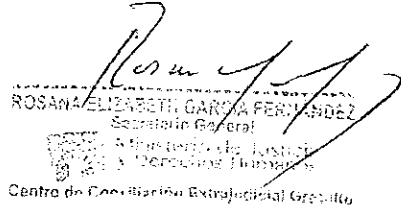 ROSANA ELIZABETH GARCIA FERNANDEZ
Secretario General
Ministerio de Justicia
y Derechos Humanos
Centro de Conciliación Extrajudicial Gratuito